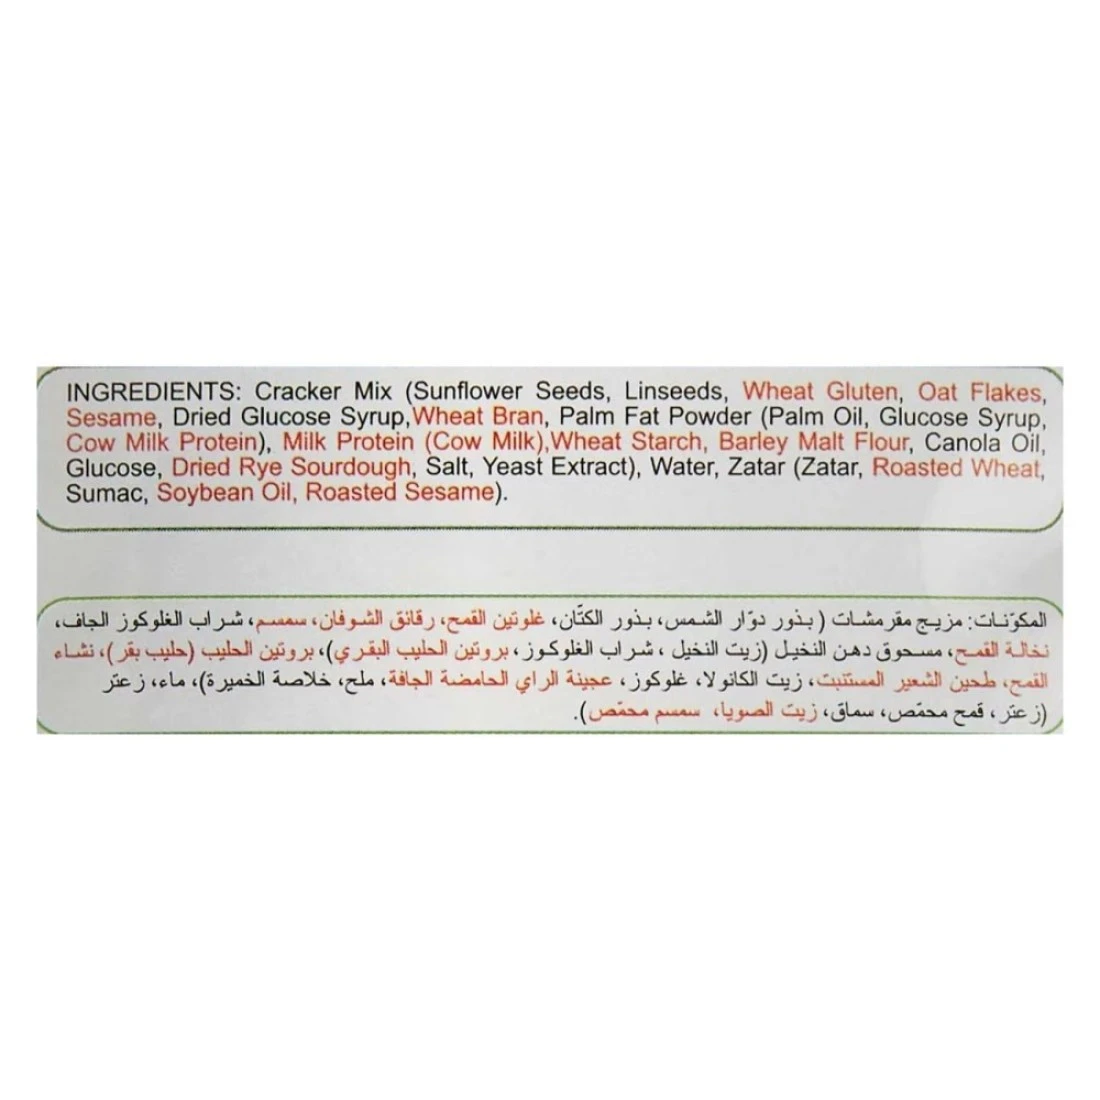 INGREDIENTS: Cracker Mix (Sunflower Seeds, Linseeds, Wheat Gluten, Oat Flakes,
Sesame, Dried Glucose Syrup,Wheat Bran, Palm Fat Powder (Palm Oil, Glucose Syrup,
Cow Milk Protein), Milk Protein (Cow Milk),Wheat Starch, Barley Malt Flour, Canola Oil,
Glucose, Dried Rye Sourdough, Salt, Yeast Extract), Water, Zatar (Zatar, Roasted Wheat,
Sumac, Soybean Oil, Roasted Sesame).
المكوّنات: مزيج مقرمشات (بذور دوّار الشمس، بذور الكتّان، غلوتين القمح، رقائق الشوفان، سمسم، شراب الغلوكوز الجاف،
نخالة القمح، مسحوق دهن النخيل (زيت النخيل ، شراب الغلوكوز، بروتين الحليب البقري)، بروتين الحليب (حليب بقر)، نشاء
القمح، طحين الشعير المستنبت، زيت الكانولا، غلوكوز، عجينة الراي الحامضة الجافة، ملح، خلاصة الخميرة)، ماء، زعتر
(زعتر، قمح محمّص، سماق، زيت الصويا، سمسم محمّص).